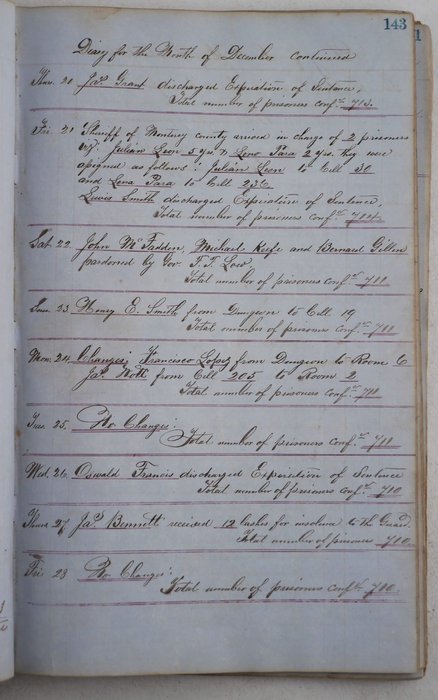 143
Diary for the Month of December continued
Thur. 20. Jas. Grant discharged Expiration of Sentence,
Total number of prisoners conf.
Fri. 21 Sheriff of Monterey county arrived in charge of 2 prisoners
viz. Julian Leon 5 yrs & Leno Para 2 yrs. they were
assigned as follows: Julian Leon to Cell 30
and Leno Para to Cell
Lewis Smith discharged Expiration of Sentence,
Total number of prisoners conf.
Sat. 22. John McFadden, Michael Keife and Bernard Gillen
pardoned by Gov. F.F. Low
Total number of prisoners conf.
Sun. 23. Henry E. Smith from Dungeon to Cell 19
Total number of prisoners conf.
Mon. 24. Changes: Francisco Lopez from Dungeon to Room 6
Jas. Nott from Cell 205 to Room 2
Total number of prisoners conf.
Tues. 25. No Changes:
Total number of prisoners conf.
Wed. 26. Oswald Francis discharged Expiration of Sentence
Total number of prisoners conf. 700
Thur. 27. Jas. Bennett received 12 lashes for insolence to the Guard.
Total number of prisoners 700
Fri 28 No Changes:
Total number of prisoners conf. 700